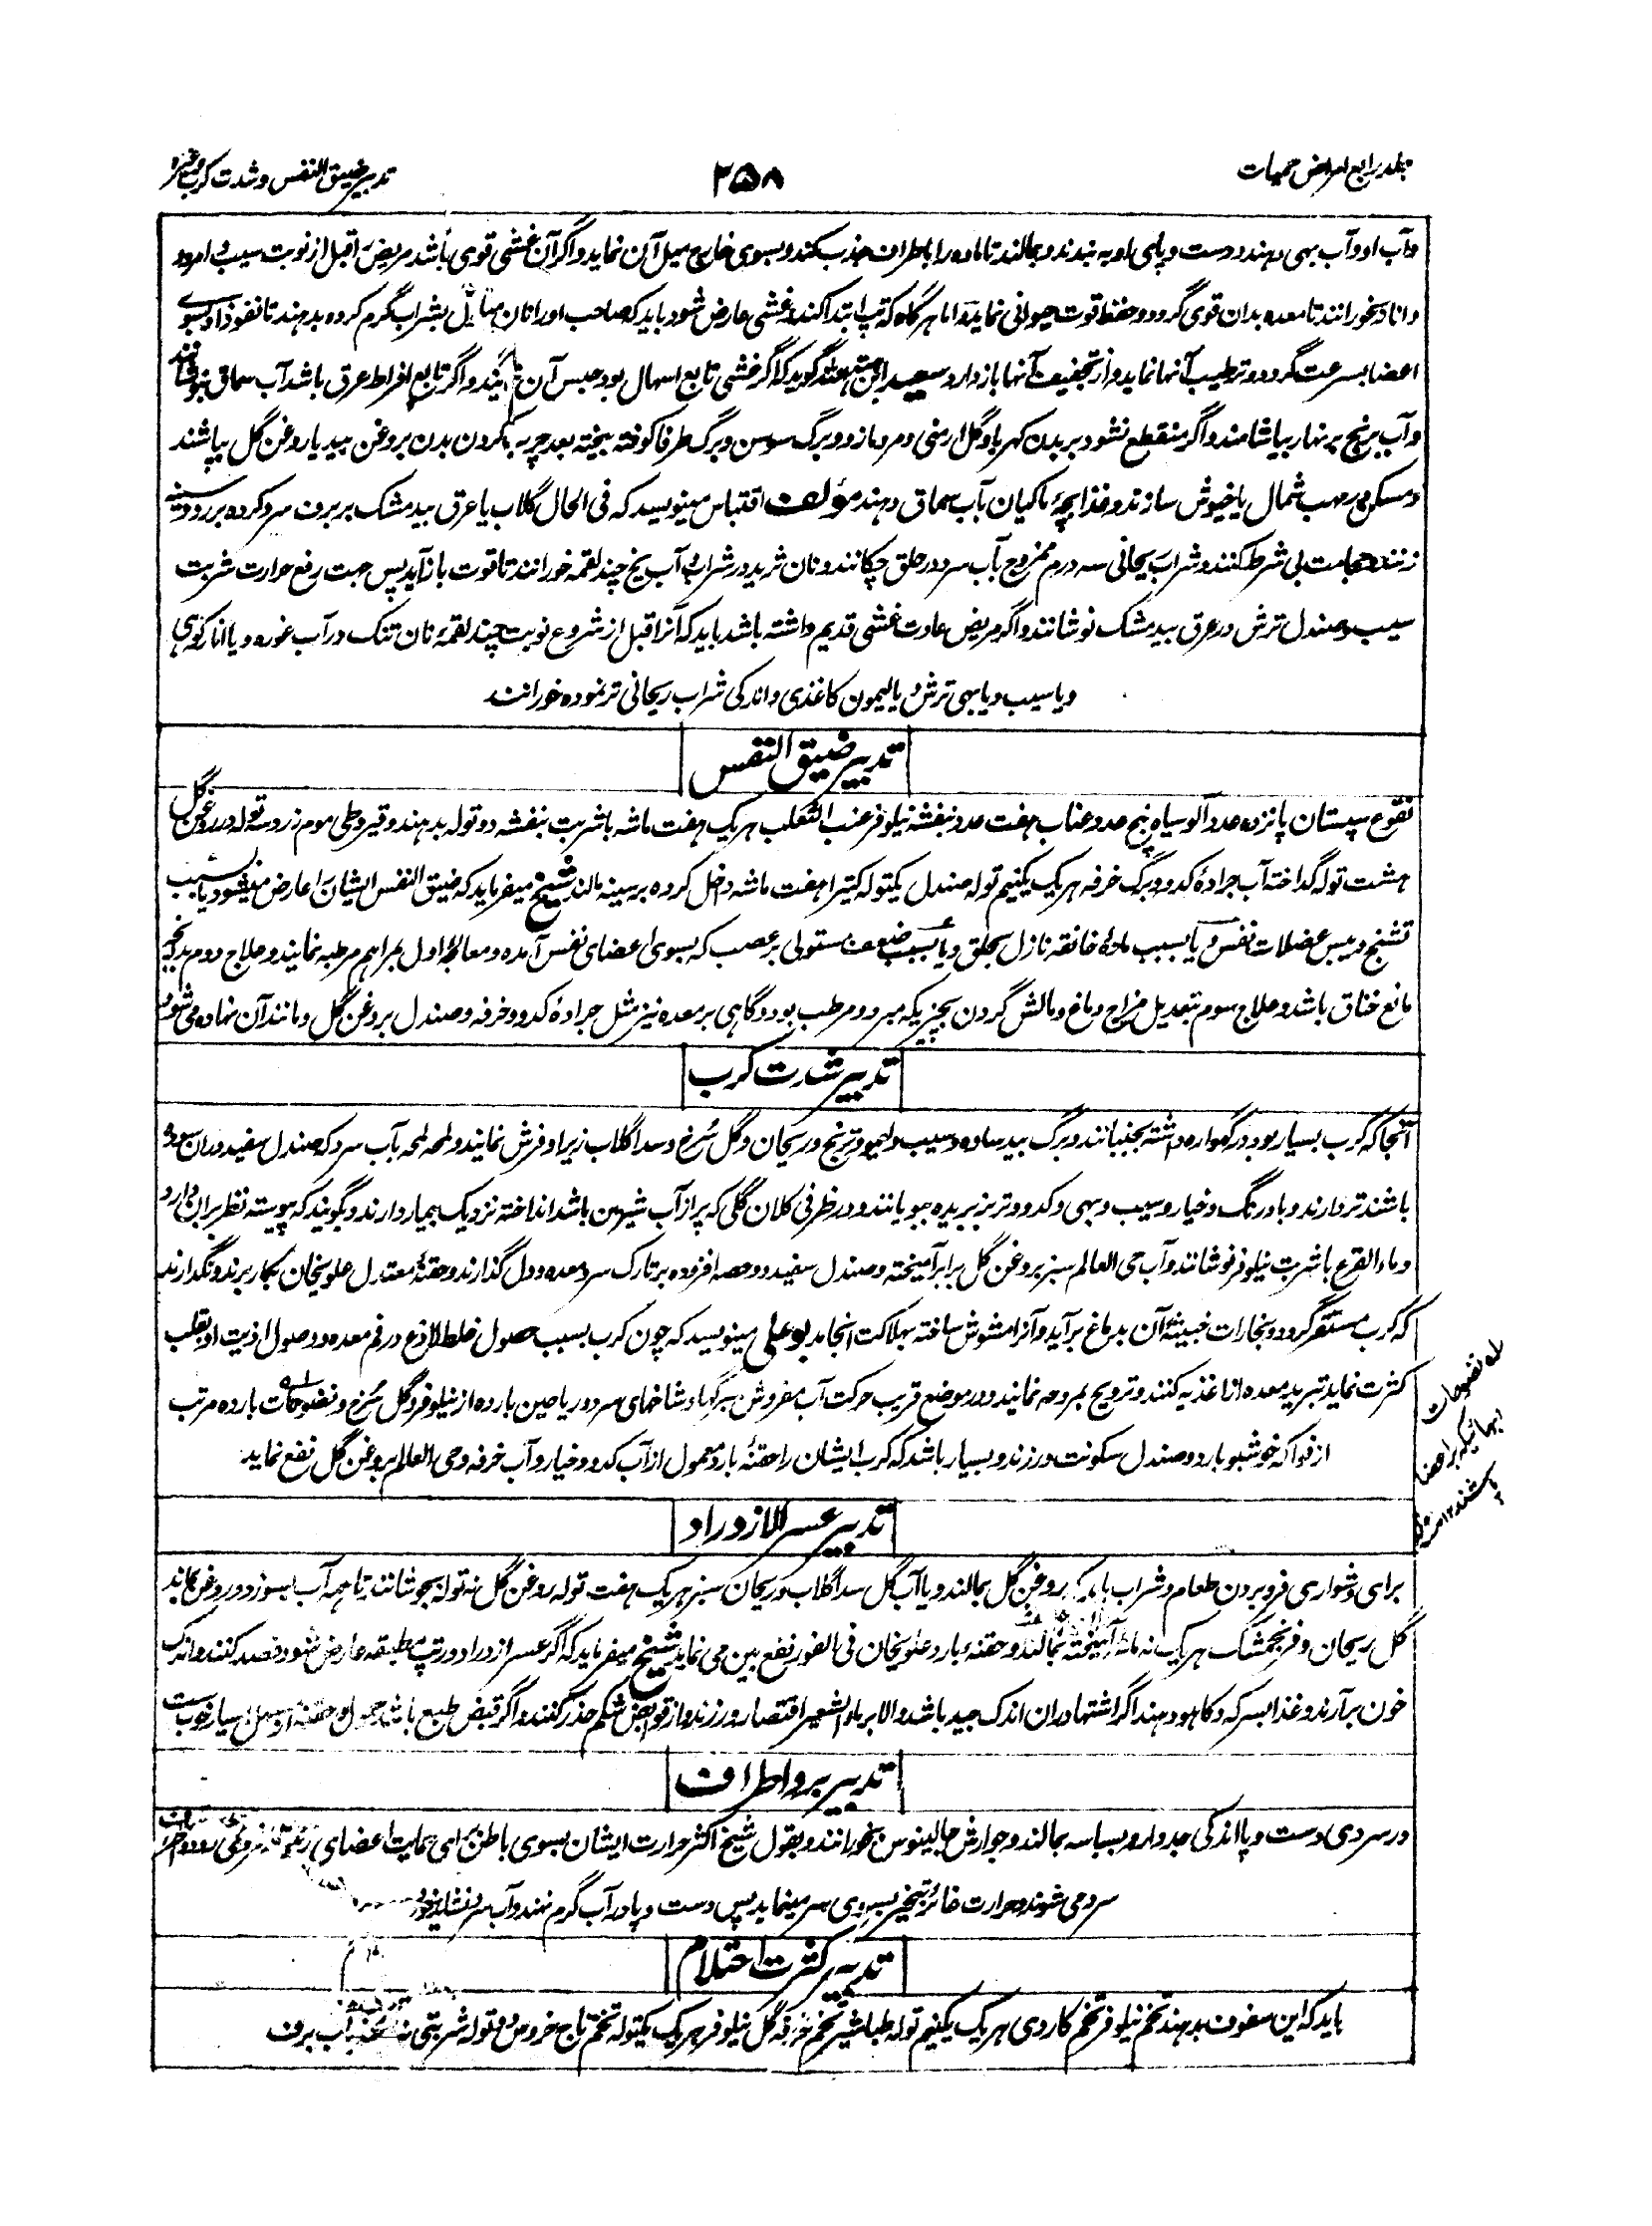 جلد رابع امراض حمیات
۲۵۸
تدبیر ضیق النفس و شدت کرب وغیره
وآب او وآب بهی دهند و دست و پای او به بندند و بمالند تا ماده را باطراف جذب کند و بسوی خارج میل آن نماید و اگر آن غشی قوی باشد مریض را قبل از نوبت سیب و امرود
و انار بخورانند تا معده بدان قوی گردد و حفظ قوت حیوانی نماید و اما هرگاه که تپ ابتدا کند و غشی عارض شود باید که صاحب او را نان بشراب گرم کرده بدهند تا نفوذ او بسوی
اعضا بسرعت گردد و ترطیب آنها نماید و از تجفیف آنها باز دارد سعید ابن هبة الله گوید که اگر غشی تابع اسهال بود حبس آن نمایند و اگر تابع افراط عرق باشد آب سماق بنوشانند
و آب برنج بر نهار بیاشامند و اگر منقطع نشود بر بدن کهربا و گل ارمنی و مر و مازو و برگ سوسن و برگ طرفا کوفته بیخته بعد چرب کردن بدن بروغن بید یا روغن گل بپاشند
و مسکن مهب شمال یا خیوش سازند و غذا بچهٔ ماکیان بآب سماق دهند مؤلف اقتباس مینویسد که فی الحال گلاب یا عرق بیدمشک بر برف سرد کرده بر رو و سینه
زنند و حجامت بی شرط کنند و شراب ریحانی سه درم ممزوج بآب سرد در حلق چکانند و نان ثرید در شراب و آب یخ چند لقمه خورانند تا قوت باز آید پس جهت رفع حرارت شربت
سیب و صندل ترش در عرق بیدمشک نوشانند و اگر مریض عادت غشی قدیم داشته باشد باید که آنرا قبل از شروع نوبت چند لقمهٔ نان تنک در آب غوره و یا انار کوهی
و یا سیب و یا بهی ترش و یا لیمون کاغذی و اندکی شراب ریحانی تر نموده خورانند
تدبیر ضیق النفس
نقوع سپستان پانزده عدد آلو سیاه پنج عدد عناب هفت عدد بنفشه نیلوفر عنب الثعلب هر یک هفت ماشه باشربت بنفشه دو توله بدهند و قیروطی موم زرد سه توله در روغن گل
هشت توله گداخته آب جرادهٔ کدو و برگ خرفه هر یک یکنیم توله صندل یکتوله کتیرا هفت ماشه داخل کرده بر سینه مالند شیخ میفرماید که ضیق النفس ایشان را عارض میشود یا بسبب
تشنج و یبس عضلات نفس و یا بسبب مادهٔ خانقه نازل بحلق و یا بسبب ضعف مستولی بر عصب که بسوی اعضای نفس آمده و معالجهٔ اول بمراهم مرطبه نمایند و علاج دوم بدانچه
مانع خناق باشد و علاج سوم بتعدیل مزاج دماغ و مالش گردن بچیزیکه مبرد و مرطب بود و گاهی بر معده نیز مثل جرادهٔ کدو و خرفه و صندل بروغن گل و مانند آن نهاده می شود
تدبیر شدت کرب
آنجا که کرب بسیار بود در گهواره داشته بجنبانند و برگ بید ساده و سیب و لیمو و ترنج و ریحان و گل سرخ و سدا گلاب زیر او فرش نمایند و لمحه لمحه بآب سرد که صندل سفید در ان سوده
باشند تر دارند و بادرنگ و خیار و سیب و بهی و کدو و تربز بریده ببویانند و در ظرفی کلان گلی که پر از آب شیرین باشد انداخته نزدیک بیمار دارند و بگویند که پیوسته نظر بران دارد
و ماء القرع باشربت نیلوفر نوشانند و آب حی العالم سبز بروغن گل برابر آمیخته و صندل سفید دو حصه افزوده بر تارک سر و معده و دل گذارند و حقنهٔ معتدل علویخان بکار برند و نگذارند
که کرب مستقر گردد و بخارات خبیثهٔ آن بدماغ برآید و آنرا مشوش ساخته بهلاکت انجامد بوعلی مینویسد که چون کرب بسبب حصول خلط لاذع در فم معده و وصول اذیت او بقلب
کثرت نماید تبرید معده از اغذیه کنند و ترویح بمروحه نمایند و در موضع قریب حرکت آب مفروش ببرگها و شاخهای سرد و ریاحین بارده از نیلوفر و گل سرخ و نضوحات بارده مرتب
از فواکه خوشبو بارد و صندل سکونت ورزند و بسیار باشد که کرب ایشان را حقنهٔ بارد معمول از آب کدو و خیار و آب خرفه و حی العالم بروغن گل نفع نماید
تدبیر عسر الازدراد
برای دشواری فرو بردن طعام و شراب باید که روغن گل بمالند و یا آب گل سدا گلاب و ریحان سبز هر یک هفت توله روغن گل نه توله بجوشانند تا همه آب بسوزد و روغن بماند
گل ریحان و فرنجمشک هر یک نه ماشه آمیخته بمالند و حقنهٔ بارد علویخان فی الفور نفع بین می نماید شیخ میفرماید که اگر عسر ازدراد در تپ مطبقه عارض شود فصد کنند و اندک
خون برآرند و غذا بسرکه و کاهو دهند اگر اشتها دران اندک جید باشد والا بر ماء الشعیر اقتصار ورزند و از قوابض شکم حذر کنند و اگر قبض طبع باشد حمول و حقنه از مسهل بسیار خوبست
تدبیر برد اطراف
در سردی دست و پا اندکی جدوار و بسباسه بمالند و جوارش جالینوس بخورانند و بقول شیخ اکثر حرارت ایشان بسوی باطن برای حمایت اعضای
سرد می شوند و حرارت غائر تبخیر بسوی سر مینماید پس دست و پا در آب گرم نهند و آب سرد نشاید خورد
تدبیر کثرت احتلام
باید که این سفوف بدهند تخم نیلوفر تخم کاردی هر یک یکنیم توله طباشیر تخم خرفه گل نیلوفر هر یک یکتوله تخم تاج خروس دو توله شربتی بآب برف